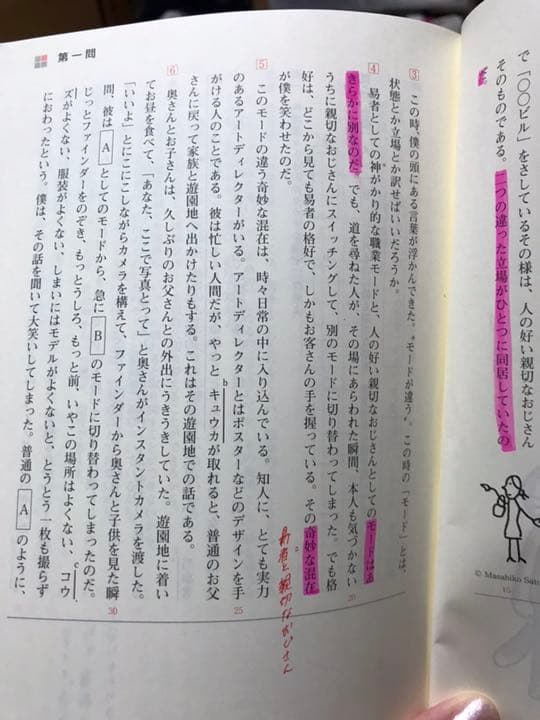 で「〇〇ビル」をさしているその様は、人の好い親切なおじさん
そのものである。二つの違った立場がひとつに同居していたの
だ。
© Masahiko Sat
第一問
3 この時、僕の頭にある言葉が浮かんできた。〝モードが違う〟。この時の「モード」とは、
状態とか立場とか訳せばいいだろうか。
4 易者としての神がかり的な職業モードと、人の好い親切なおじさんとしてのモードはあ
きらかに別なのだ。でも、道を尋ねた人が、その場にあらわれた瞬間、本人も気づかない
20
うちに親切なおじさんにスイッチングして、別のモードに切り替わってしまった。でも格
好は、どこから見ても易者の格好で、しかもお客さんの手を握っている。その奇妙な混在
が僕を笑わせたのだ。
易者と親切なおじさん
5 このモードの違う奇妙な混在は、時々日常の中に入り込んでいる。知人に、とても実力
のあるアートディレクターがいる。アートディレクターとはポスターなどのデザインを手
25
がける人のことである。彼は忙しい人間だが、やっとキュウカが取れると、普通のお父
b
さんに戻って家族と遊園地へ出かけたりもする。これはその遊園地での話である。
6 奥さんとお子さんは、久しぶりのお父さんとの外出にうきうきしていた。遊園地に着い
てお昼を食べて、「あなた、ここで写真とって」と奥さんがインスタントカメラを渡した。
「いいよ」とにこにこしながらカメラを構えて、ファインダーから奥さんと子供を見た瞬
30
間、彼は A としてのモードから、急に B のモードに切り替わってしまったのだ。
じっとファインダーをのぞき、もっとうしろ、もっと前、いやこの場所はよくない、コウ
c
ズがよくない、服装がよくない、しまいにはモデルがよくないと、とうとう一枚も撮らず
におわったという。僕は、その話を聞いて大笑いしてしまった。普通の A のように、